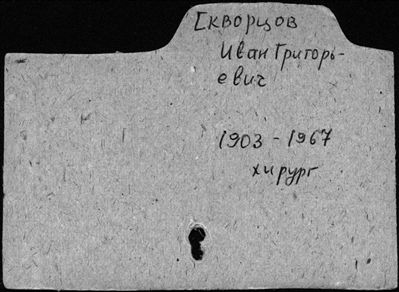 Скворцов
Иван Григорь-
евич
1903 - 1967
хирург